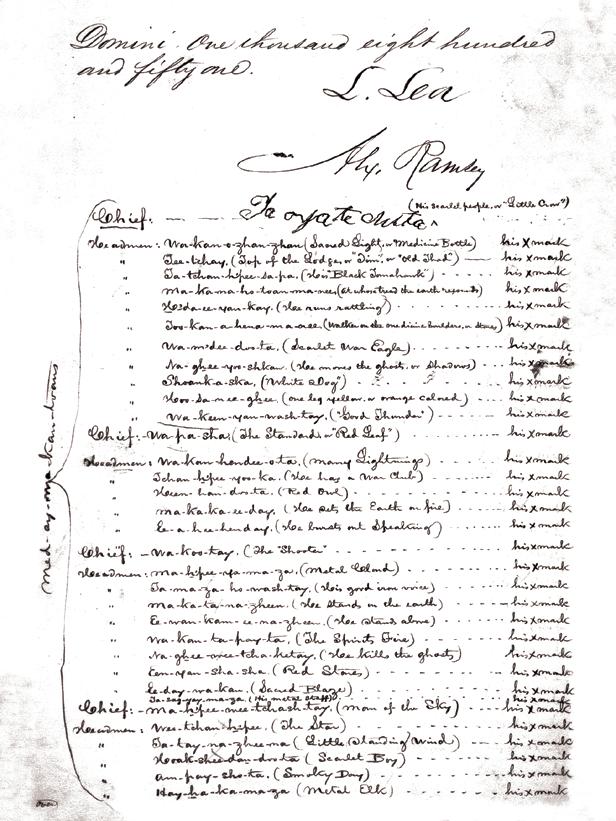 Domini. One thousand eight hundred
and fifty one.
L. Lea
Alex. Ramsey
(His scarlet people, or "Little Crow")
Chief: — — Ta oyate duta
Headmen: Wa-kan-o-zhan-zhan (Sacred Light, or Medicine Bottle) his x mark
" Tee-tchay, (Top of the Lodge, or "Jim", or "Old Thad") his x mark
" Ta-tchan-h'pee-sa-pa, (His "Black Tomahawk") his x mark
" Ma-ka-na-ho-toan-ma-nee, (At whose tread the earth resounds) his x mark
" H'da-ee-yan-kay, (He runs rattling) his x mark
" Too-kan-a-hena-ma-nee, (Walker on the medicine boulders, or stones) his x mark
" Wa-m'dee-doo-ta (Scarlet War Eagle) his x mark
" Na-ghee-yoo-shkan (He moves the ghosts, or shadows) his x mark
" Shoank-a-ska, ("White Dog") his x mark
" Hoo-sa-nee-ghee, (one leg yellow, or orange colored) his x mark
" Wa-keen-yan-wash-tay, ("Good Thunder") his x mark
Chief: Wa-pa-sha, (The Standard, or "Red Leaf") his x mark
Headmen: Wa-kan-hendee-o-ta, (many Lightnings) his x mark
" Tchan-h'pee-yoo-ka, (He has a War Club) his x mark
" Heen-han-doo-ta, (Red Owl) his x mark
" Ma-ka-ka-ee-day, (He sets the Earth on fire) his x mark
" Ee-a-hee-henday, (He bursts out Speaking) his x mark
Chief: — Wa-koo-tay, (The "Shooter") his x mark
Headmen: Ma-h'pee-ya-ma-za, (Metal Cloud) his x mark
" Ta-ma-za-ho-wash-tay, (His good iron voice) his x mark
" Ma-ka-ta-na-zheen, (He stands on the earth) his x mark
" Ee-wan-kam-ee-na-zheen, (He stands above) his x mark
" Wa-kan-ta-pay-ta, (The Spirit's Fire) his x mark
" Na-ghee-mee-tcha-ketay, (He kills the ghosts) his x mark
" Een-yan-sha-sha, (Red Stones) his x mark
" Ee-day-wa-kan, (Sacred Blaze) his x mark
" Ta-sag-yay-ma-za, (His metal staff) his x mark
Chief: — Ma-h'pee-mee-tchash-tay, (man of the Sky) his x mark
Headmen: Wee-tchan-h'pee, (The Star) his x mark
" Ta-tay-na-zhee-na (Little Standing Wind) his x mark
" Hoak-shee-dan-doo-ta (Scarlet Boy) his x mark
" Am-pay-sho-ta, (Smoky Day) his x mark
" Hay-ha-ka-ma-za (Metal Elk) his x mark
Med-ay-wa-kan-toans
over